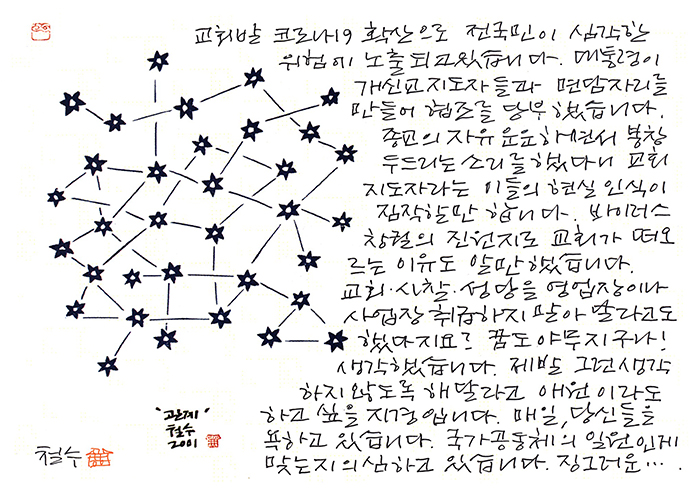 교회발 코로나19 확산으로 전국민이 심각한
위험에 노출되고있습니다. 대통령이
개신교지도자들과 면담자리를
만들어 협조를 당부했습니다.
종교의 자유 운운하면서 봉창
두드리는 소리를 했다니 교회
지도자라는 이들의 현실 인식이
짐작할만 합니다. 바이러스
창궐의 진원지로 교회가 떠오
르는 이유도 알만했습니다.
교회·사찰·성당을 영업장이나
사업장 취급하지 말아 달라고도
했다지요? 꿈도 야무지구나!
생각했습니다. 제발 그런 생각
하지 않도록 해달라고 애원이라도
하고 싶을 지경입니다. 매일, 당신들을
욕하고 있습니다. 국가공동체의 일원인게
맞는지 의심하고 있습니다. 징그러운….
"관계"
철수
2001
철수